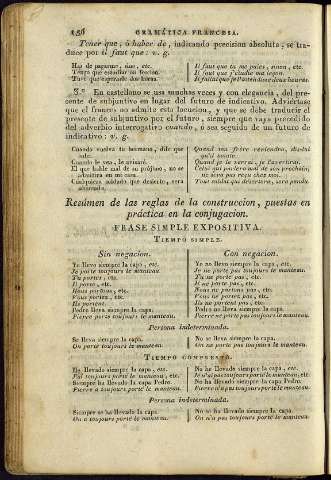 156 GRAMÁTICA FRANCESA.
Tener que, ó haber de, indicando precision absoluta, se tra-
duce por il faut que: v. g.
Has de pagarme, sino, etc.
Tengo que estudiar mi leccion.
Tuvo que esperarse dos horas.
Il faut que tu me paies, sinon, etc.
Il faut que j'étudie ma leçon.
3.º En castellano se usa muchas veces y con elegancia, del pre-
sente de subjuntivo en lugar del futuro de indicativo. Adviértase
que el frances no admite esta locucion, y que se debe traducir el
presente de subjuntivo por el futuro, siempre que vaya precedido
del adverbio interrogativo cuando, ó sea seguido de un futuro de
indicativo: v. g.
Cuando vuelva tu hermano, dile que
sale.
Cuando le vea, le avisaré.
El que hable mal de su prójimo, no se
admitirá en mi casa.
Cualquiera soldado que desierte, será
ahorcado.
Quand ton frère reviendra, dis-lui
qu'il sorte.
Quand je le verrai, je l'avertirai.
Celui qui parlera mal de son prochain,
ne sera pas reçu chez moi.
Tout soldat qui désertera, sera pendu.
Resúmen de las reglas de la construccion, puestas en
práctica en la conjugacion.
FRASE SIMPLE EXPOSITIVA.
TIEMPO SIMPLE.
Sin negacion.
Yo llevo siempre la capa, etc.
Je porte toujours le manteau.
Tu portes, etc.
Il porte, etc.
Nous portons, etc.
Vous portez, etc.
Ils portent.
Pedro lleva siempre la capa.
Pierre porte toujours le manteau.
Con negacion.
Yo no llevo siempre la capa, etc.
Je ne porte pas toujours le manteau.
Tu ne portes pas, etc.
Il ne porte pas, etc.
Nous ne portons pas, etc.
Vous ne portez pas, etc.
Ils ne portent pas, etc.
Pedro no lleva siempre la capa.
Pierre ne porte pas toujours le manteau.
Persona indeterminada.
Se lleva siempre la capa.
On porte toujours le manteau.
No se lleva siempre la capa.
On ne porte pas toujours le manteau.
TIEMPO COMPUESTO.
He llevado siempre la capa, etc.
J'ai toujours porté le manteau, etc.
Siempre ha llevado la capa Pedro.
Pierre a toujours porté le manteau, etc.
No he llevado siempre la capa, etc.
Je n'ai pas toujours porté le manteau, etc.
No ha llevado siempre la capa Pedro.
Pierre n'a pas toujours porté le manteau, etc.
Persona indeterminada.
Siempre se ha llevado la capa.
On a toujours porté le manteau.
No se ha llevado siempre la capa.
On n'a pas toujours porté le manteau.